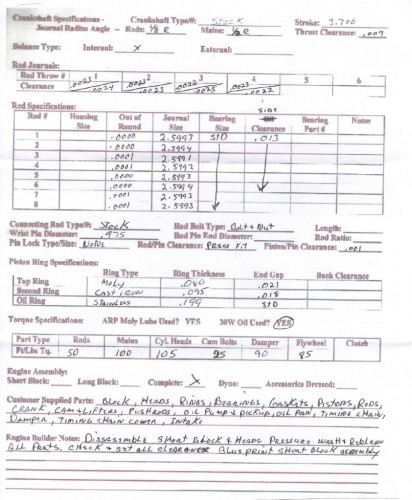 Crankshaft Specifications - Crankshaft Type/#: Stock Stroke: 3.700
Journal Radius Angle - Rods: 1/8 R Mains: 1/8 R Thrust Clearance: .007
Balance Type: Internal: X External:
Rod Journals:
Rod Throw # 1 2 3 4 5 6
Clearance .0023 .0024 .0023 .0023 .0022 .0025 .0023 .0022
Rod Specifications:
SIDE
Rod # Housing Size Out of Round Journal Size Bearing Size Clearance Bearing Part # Notes
1 .0000 2.5993 STD .013
2 .0000 2.5994
3 .0001 2.5991
4 .0001 2.5992
5 .0000 2.5993
6 .0000 2.5994
7 .0001 2.5993
8 .0001 2.5993
Connecting Rod Type/#: Stock Rod Bolt Type: Bolt & Nut Length:
Wrist Pin Diameter: .975 Rod Pin End Diameter: Rod Ratio:
Pin Lock Type/Size: None Rod/Pin Clearance: Press Fit Piston/Pin Clearance: .001
Piston Ring Specifications:
Ring Type Ring Thickness End Gap Back Clearance
Top Ring Moly .080 .021
Second Ring Cast Iron .095 .018
Oil Ring Stainless .199 STD
Torque Specifications: ARP Moly Lube Used? YES 30W Oil Used? YES
Part Type Rods Mains Cyl. Heads Cam Bolts Damper Flywheel Clutch
Ft/Lbs Tq. 50 100 105 25 90 85
Engine Assembly:
Short Block: Long Block: Complete: X Dyno: Accessories Dressed:
Customer Supplied Parts: Block, Heads, Rings, Bearings, Gaskets, Pistons, Rods,
Crank, Cam & Lifters, Pushrods, Oil Pump & Pickup, Oil Pan, Timing Chain,
Damper, Timing Chain Cover, Intake
Engine Builder Notes: Dissasemble Short Block & Heads Pressure Wash & Reclean
All Parts, Check & Set All Clearances Blueprint Short Block Assembly